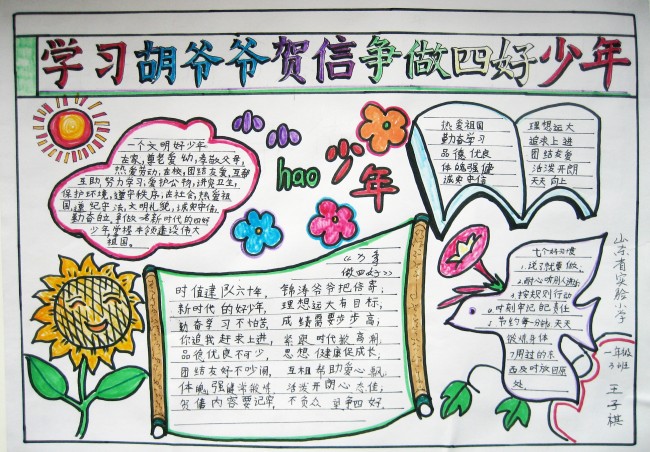 学习胡爷爷贺信争做四好少年
一个文明好少年
在家,尊老爱幼,孝敬父母,
热爱劳动,在校,团结友爱,互帮
互助,努力学习,爱护公物,讲究卫生,
保护环境,遵守秩序,在社会,热爱祖
国,遵纪守法,文明礼貌,诚实守信,
勤奋自立,争做一名新时代的四好
少年,学模本领建设伟大
祖国。
小小
hao
少年
热爱祖国
勤奋学习
品德优良
体魄强健
诚实守信
理想远大
追求上进
团结友爱
活泼开朗
天天向上
《力争
做四好》
时值建队六十年, 锦涛爷爷把信寄;
新时代的好少年, 理想远大有目标;
勤奋学习不怕苦, 成绩需要步步高;
你追我赶求上进, 紧跟时代最高潮;
品德优良不可少, 思想健康促成长;
团结友好不吵闹, 互相帮助爱心飘;
体魄强健 活泼开朗心态佳;
贺信内容要记牢, 不负众望争四好.
七个好习惯
1.说了就要做.
2.耐心听别人讲话
3.按规则行动
4.时刻牢记的责任
5.节约每一分钱 天天
锻炼身体
7.用过的东
西及时放回原
处.
山东省实验小学
一年级
3班
王子祺